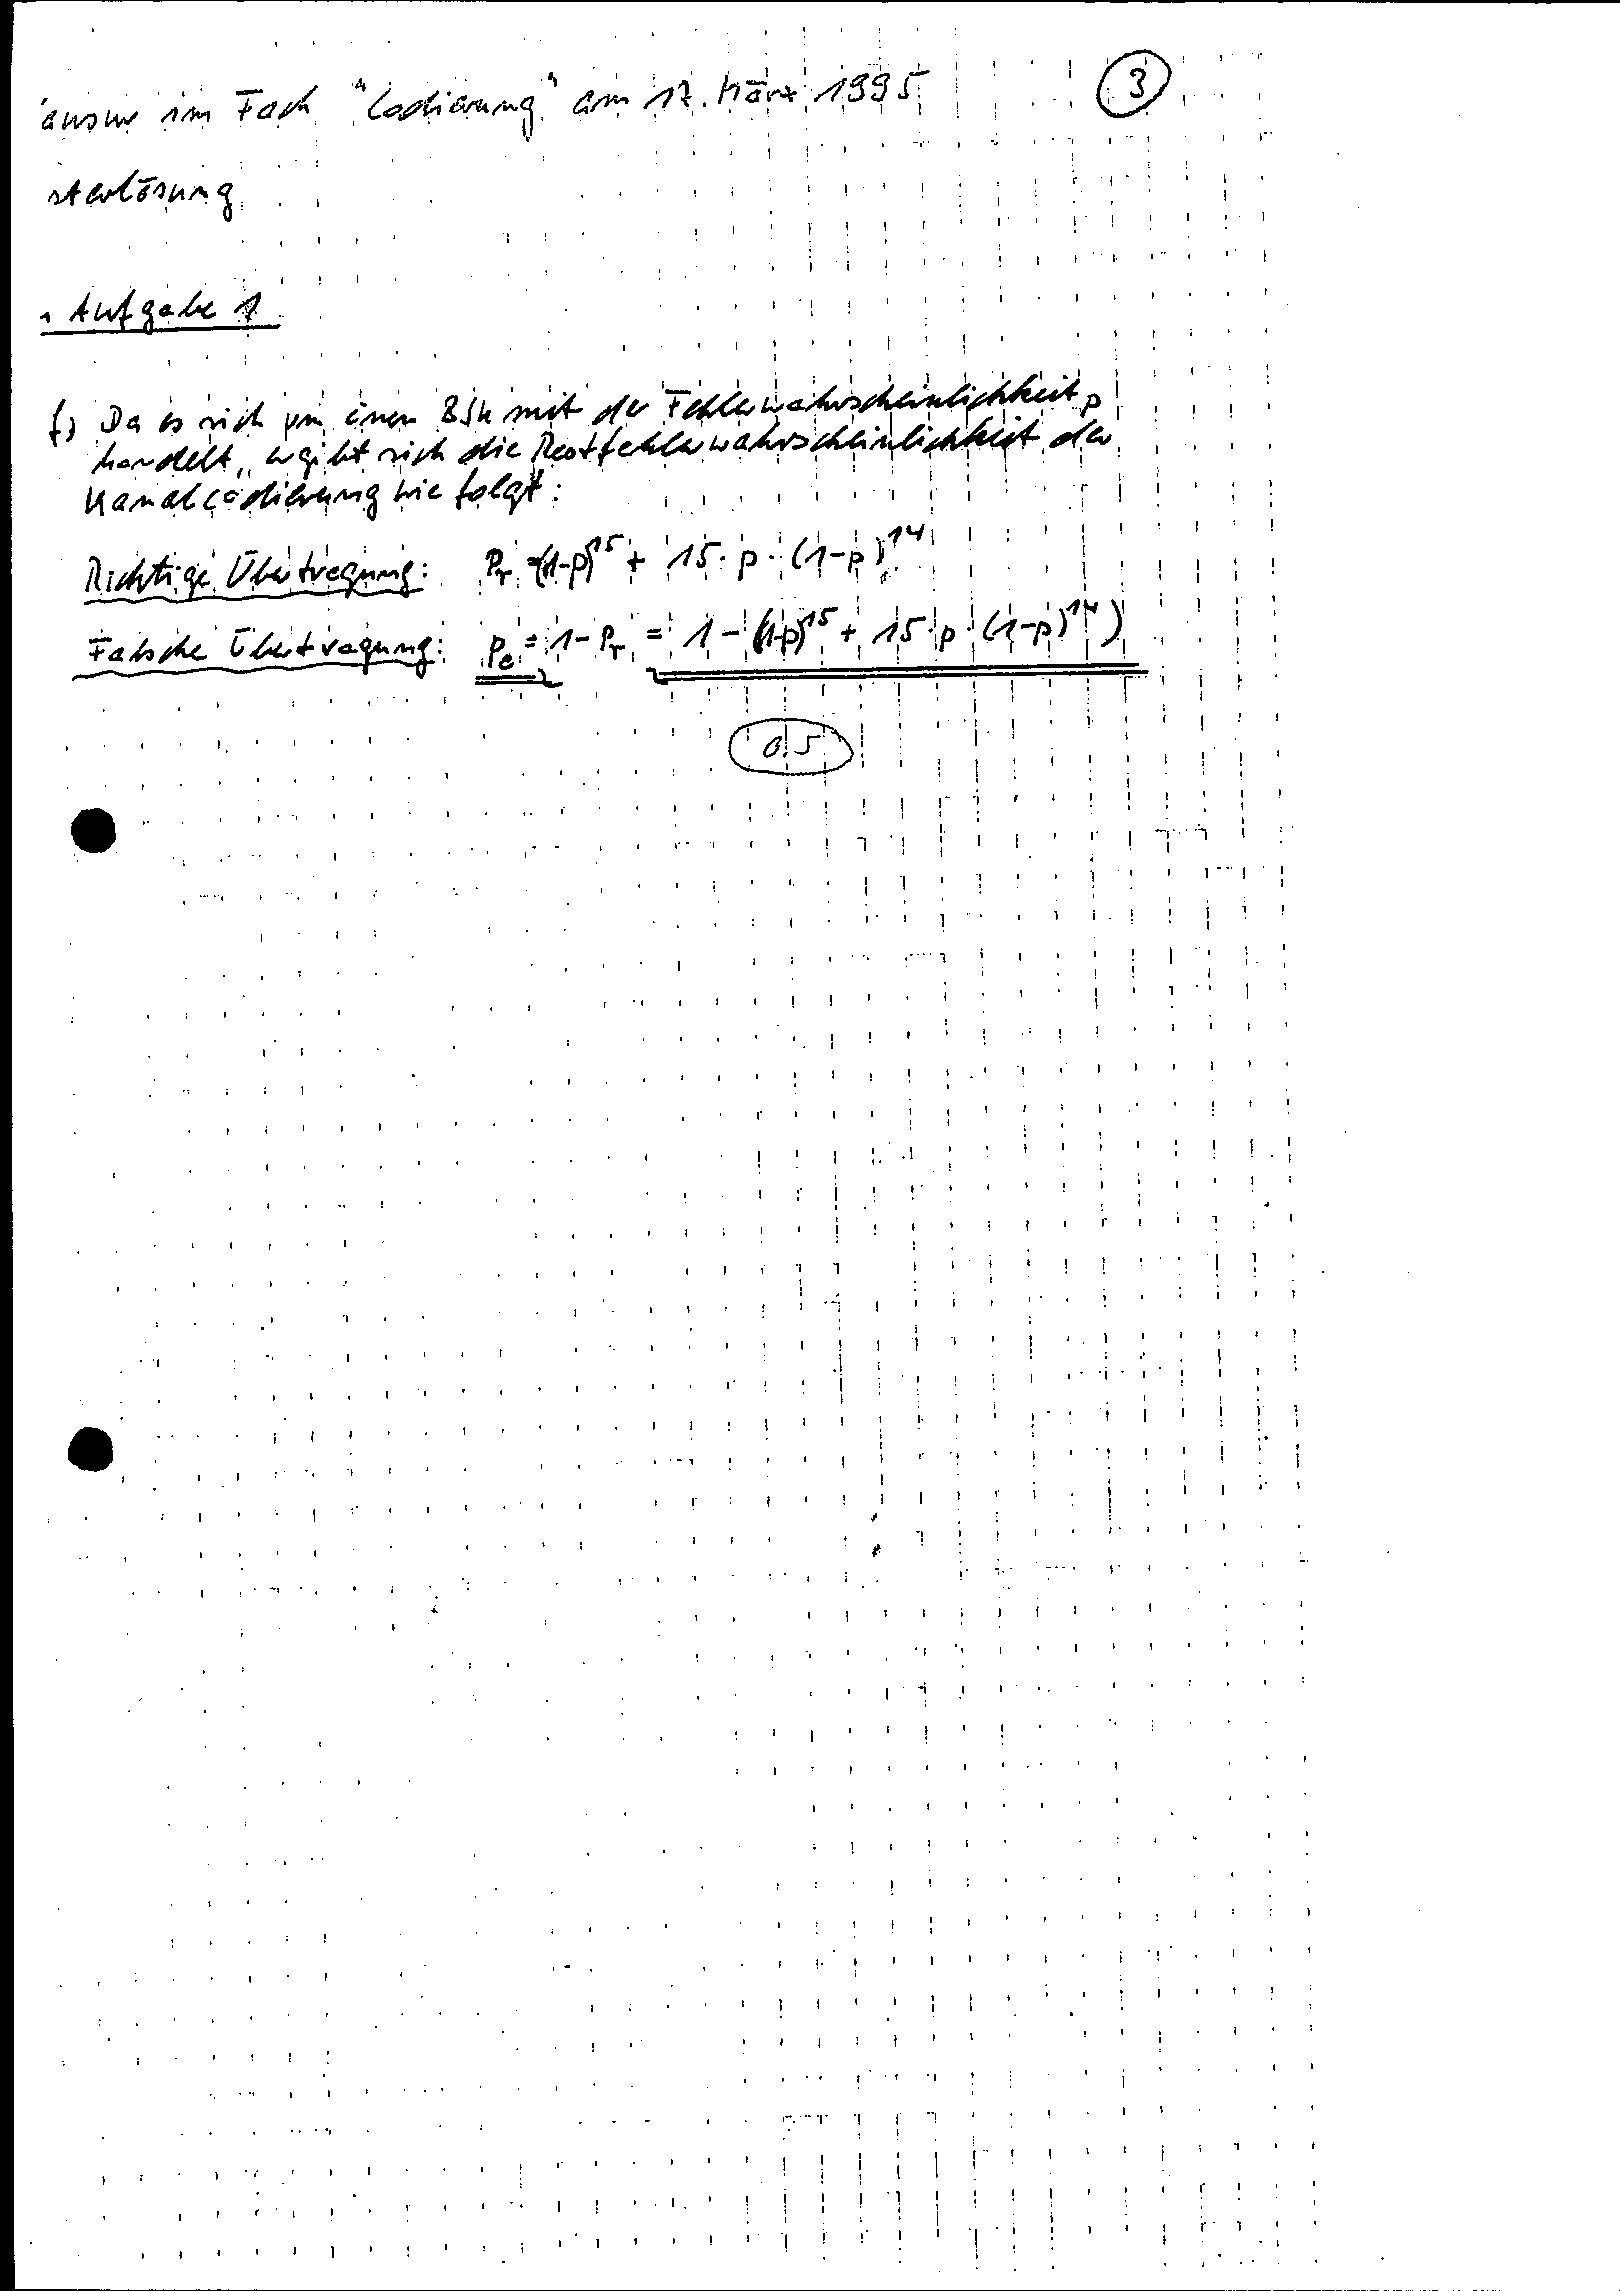 ausur im Fach "Codierung" am 17. März 1995
3
sterlösung
Aufgabe 1
f) Da es sich um einen BSK mit der Fehlerwahrscheinlichkeit p
handelt, ergibt sich die Restfehlerwahrscheinlichkeit der
Kanalcodierung wie folgt:
Richtige Übertragung: Pr = (1-p)^15 + 15 · p · (1-p)^14
Falsche Übertragung: Pe = 1 - Pr = 1 - ((1-p)^15 + 15 · p · (1-p)^14)
0.5